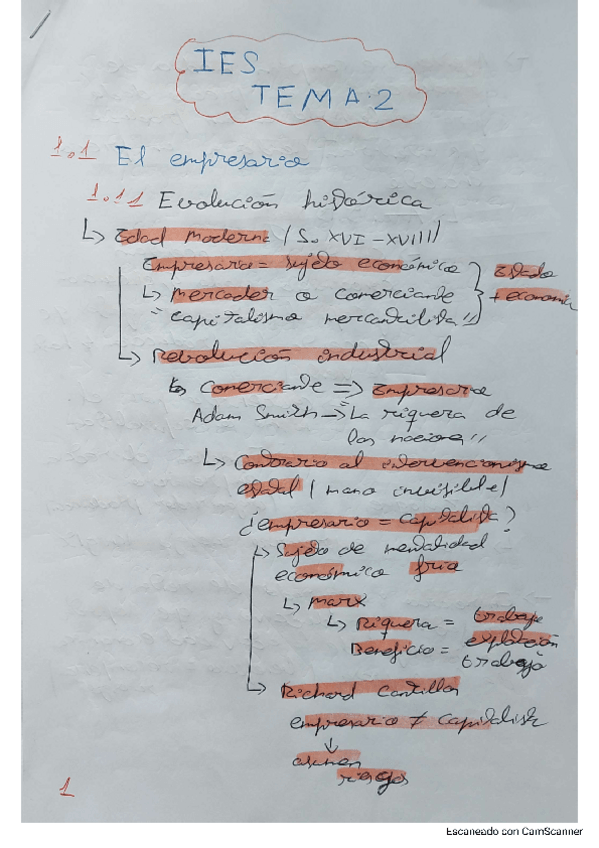 IES
TEMA.2
1.1 El empresario
1.1.1 Evolución histórica
↳ Edad Moderna (S. XVI - XVIII)
Empresario = sujeto económico } Estado
↳ mercader o comerciante + economía
"capitalismo mercantilista"
↳ Revolución industrial
↳ Comerciante => Empresario
Adam Smith -> "La riqueza de
las naciones"
↳ Contrario al intervencionismo
estatal (mano invisible)
¿empresario = capitalista?
↳ Sujeto de mentalidad
económica fría
↳ Marx
↳ Riqueza = trabajo
Beneficio = explotación
trabajo
↳ Richard Cantillon
empresario ≠ capitalista
↓
asumen
riesgos
1
Escaneado con CamScanner